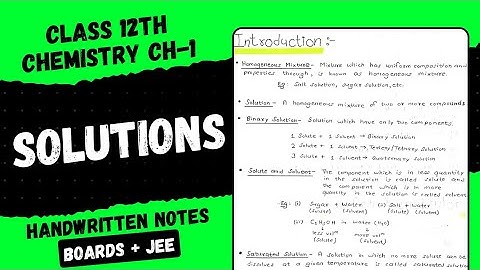 CLASS 12TH
CHEMISTRY CH-1
SOLUTIONS
HANDWRITTEN NOTES
BOARDS + JEE
Introduction:-
• Homogeneous Mixture- Mixture which has uniform composition and
properties through, is known as homogeneous mixture.
Eg: Salt solution, sugar solution, etc.
• Solution - A homogeneous mixture of two or more compounds
• Binary Solution- Solution which have only two components.
1 Solute + 1 Solvent → Binary Solution
2 Solute + 1 Solvent → Ternary/Tetrary Solution
3 Solute + 1 Solvent → Quaternary Solution
• Solute and Solvent- The component which is in less quantity
in the solution is called solute and
the component which is in more
quantity in the solution is called solvent.
Eg: (i) Sugar + Water (ii) Salt + water
(Solute) (Solvent) (Solute) (Solvent)
(iii) C₂H₅OH in water (H₂O)
less volᵐ more volᵐ
(Solute) (Solvent)
• Saturated Solution - A solution in which no more solute can be
dissolved at a given temperature is called saturated solution